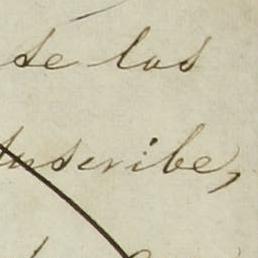 se las
suscribe,